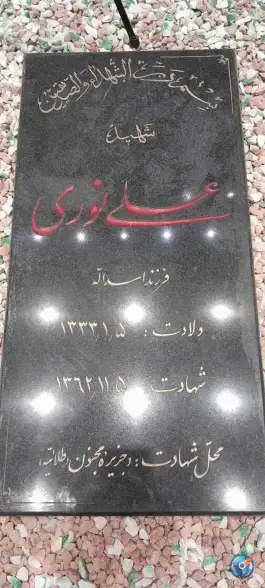 بسم رب الشهداء والصدیقین
شهید
علی نوری
فرزند اسداله
ولادت : ۱۳۳۳/۱/۵
شهادت : ۱۳۶۲/۱۱/۵
محل شهادت : جزیره مجنون (طلائیه)